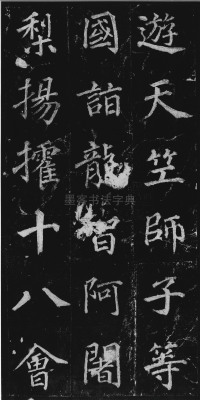 遊天竺師子等
國詣龍智阿闍
梨揚擢十八會
墨客书法字典